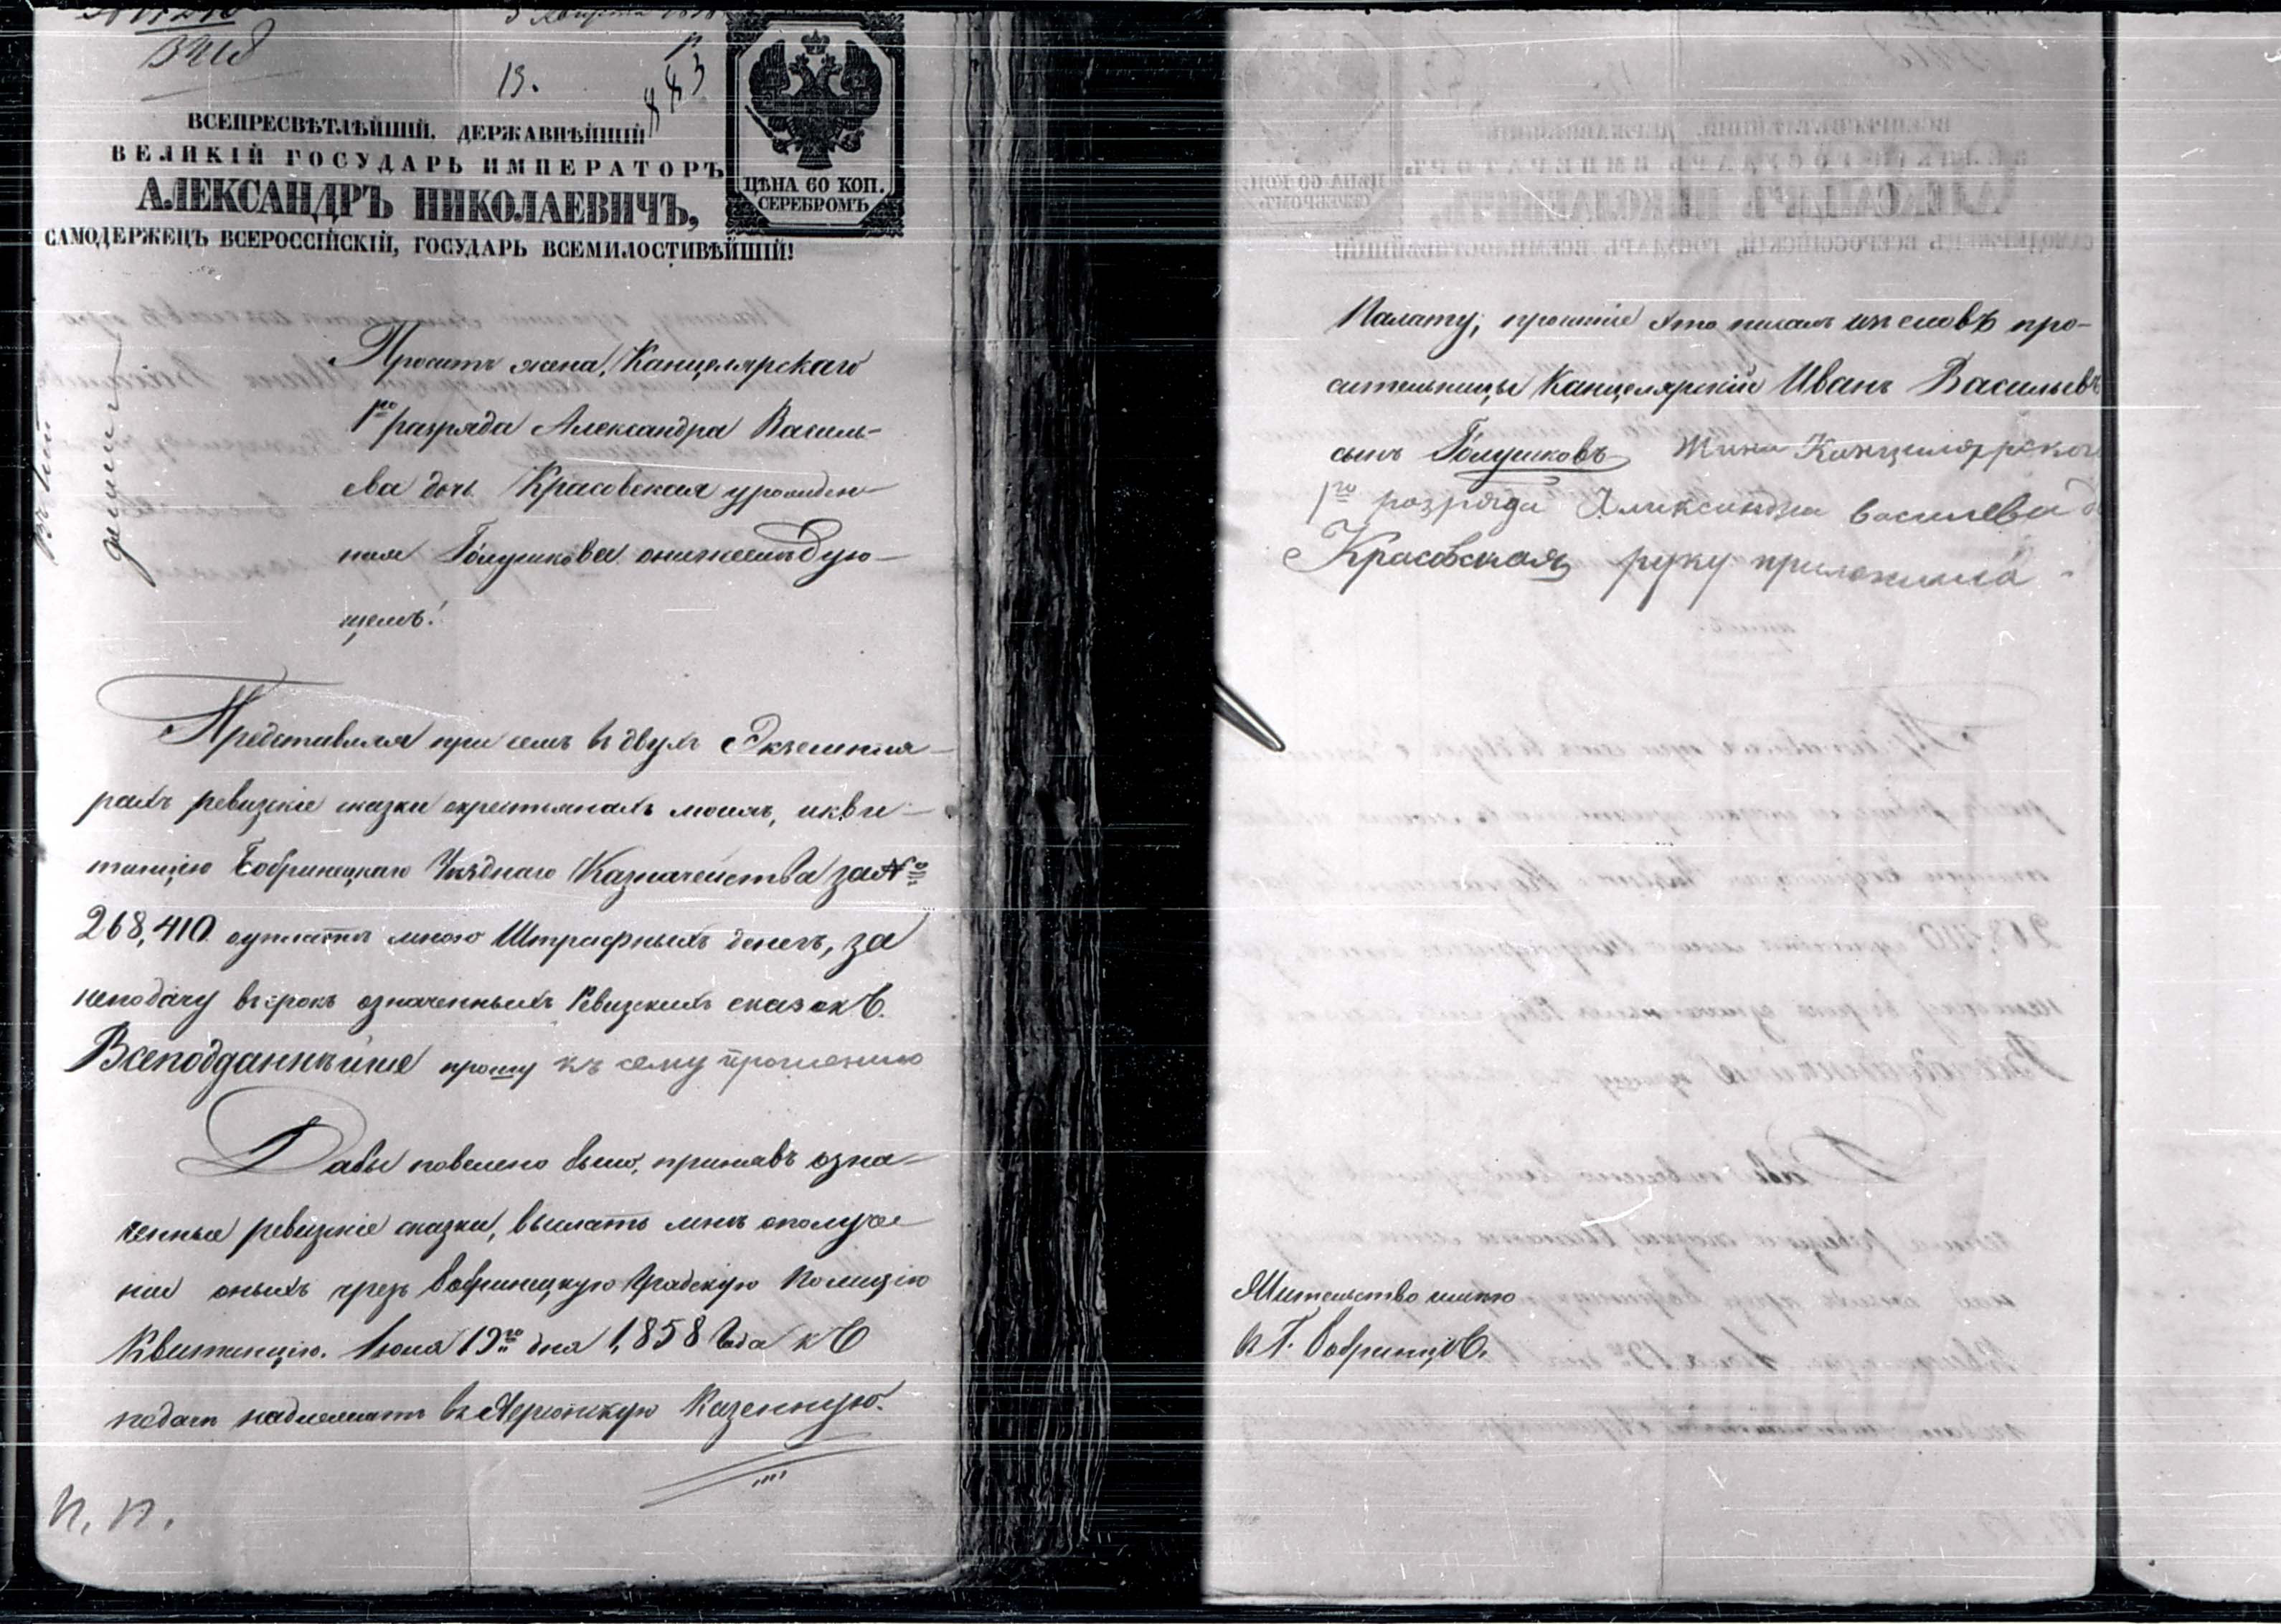 13.
883
ВСЕПРЕСВѢТЛѢЙШІЙ, ДЕРЖАВНѢЙШІЙ
ВЕЛИКІЙ ГОСУДАРЬ ИМПЕРАТОРЪ
АЛЕКСАНДРЪ НИКОЛАЕВИЧЪ,
САМОДЕРЖЕЦЪ ВСЕРОССІЙСКІЙ, ГОСУДАРЬ ВСЕМИЛОСТИВѢЙШІЙ!
ЦѢНА 60 КОП.
СЕРЕБРОМЪ
Проситъ жена, Канцелярскаго
1го разряда Александра Василь-
ева дочь Красовская урожден-
ная Голушкова онижеслѣдую-
щемъ!
Представляя при семъ въ двухъ Экземпля-
рахъ ревизкіе сказки окрестьянахъ моихъ, икви-
танцію Бобринецкаго Уѣзднаго Казначейства за №
268,410 оуплатѣ мною Штрафныхъ денегъ, за
неподачу въ срокъ означенныхъ Ревизкихъ сказокъ.
Всеподданнѣйше прошу къ сему прошению
Дабы повелено было, принявъ озна-
ченные ревизкіе сказки, выслать мнѣ ополуче
ніи оныхъ чрезъ Бобринецкую Градскую Полицію
Квитанцію. Іюля 19го дня 1858 Года къ
подачи надлежитъ въ Херсонскую Казенную.
Палату, прошеніе это писалъ изъ словъ про-
сительницы Канцелярскій Иванъ Васильевъ
сынъ Голушковъ Жина Канциляррского
1го розряда Аликсандра василева
Красовская руку приложила
Жительство имѣю
въ Г. Бобринцѣ.